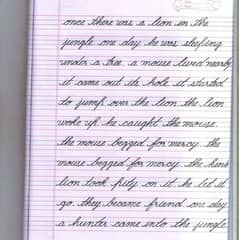 once there was a lion in the
jungle one day he was sleeping
under a tree. a mouse lived nearby
it came out its hole it started
to jump over the lion the lion
woke up he caught the mouse.
the mouse begged for mercy. the
mouse begged for mercy. the
lion took pity on it he let it
go. they became friend one day
a hunter came into the jungle